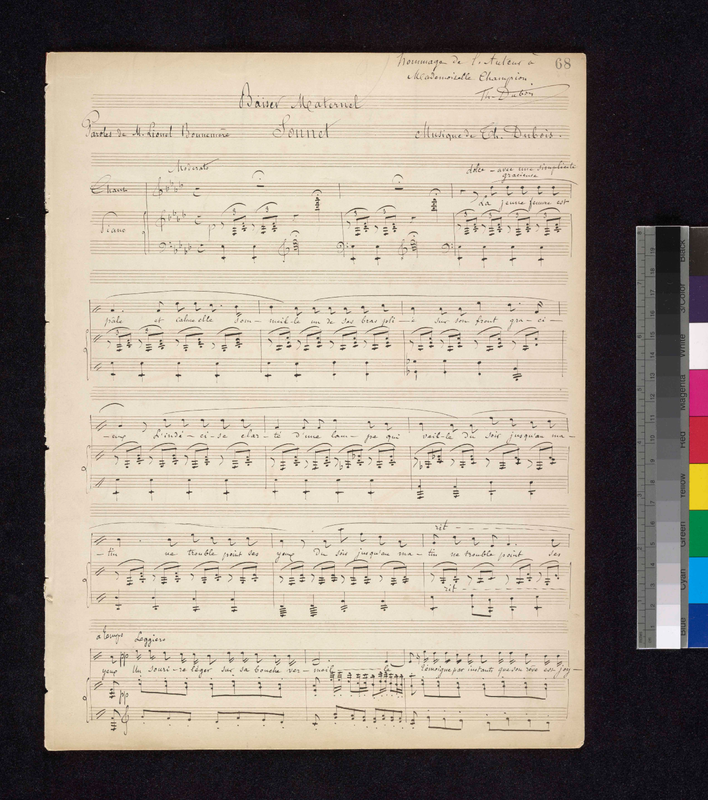 hommage de l'Auteur à
68
Mademoiselle Champion
Th. Dubois
Baiser Maternel
Paroles de M. Lionel Bonnemère Sonnet Musique de Th. Dubois.
Moderato
dolce - avec une simplicité
gracieuse
Chant
La jeune femme est
Piano
p
pâle et calme elle som - meil - le un de ses bras pli - é sur son front gra - ci -
- eux L'indé - ci - se clar - té d'une lam - pe qui veil - le du soir jusqu'au ma -
rit - - - -
- tin ne trouble point ses yeux Du soir jusqu'au ma - tin ne trouble point ses
rit - - - -
a tempo Leggiero
pp
yeux Un souri - re léger sur sa bouche ver - meil - le Témoigne par instants que son rêve est joy -
pp
Black
3/Color
White
Magenta
Red
Yellow
Green
Cyan
Blue